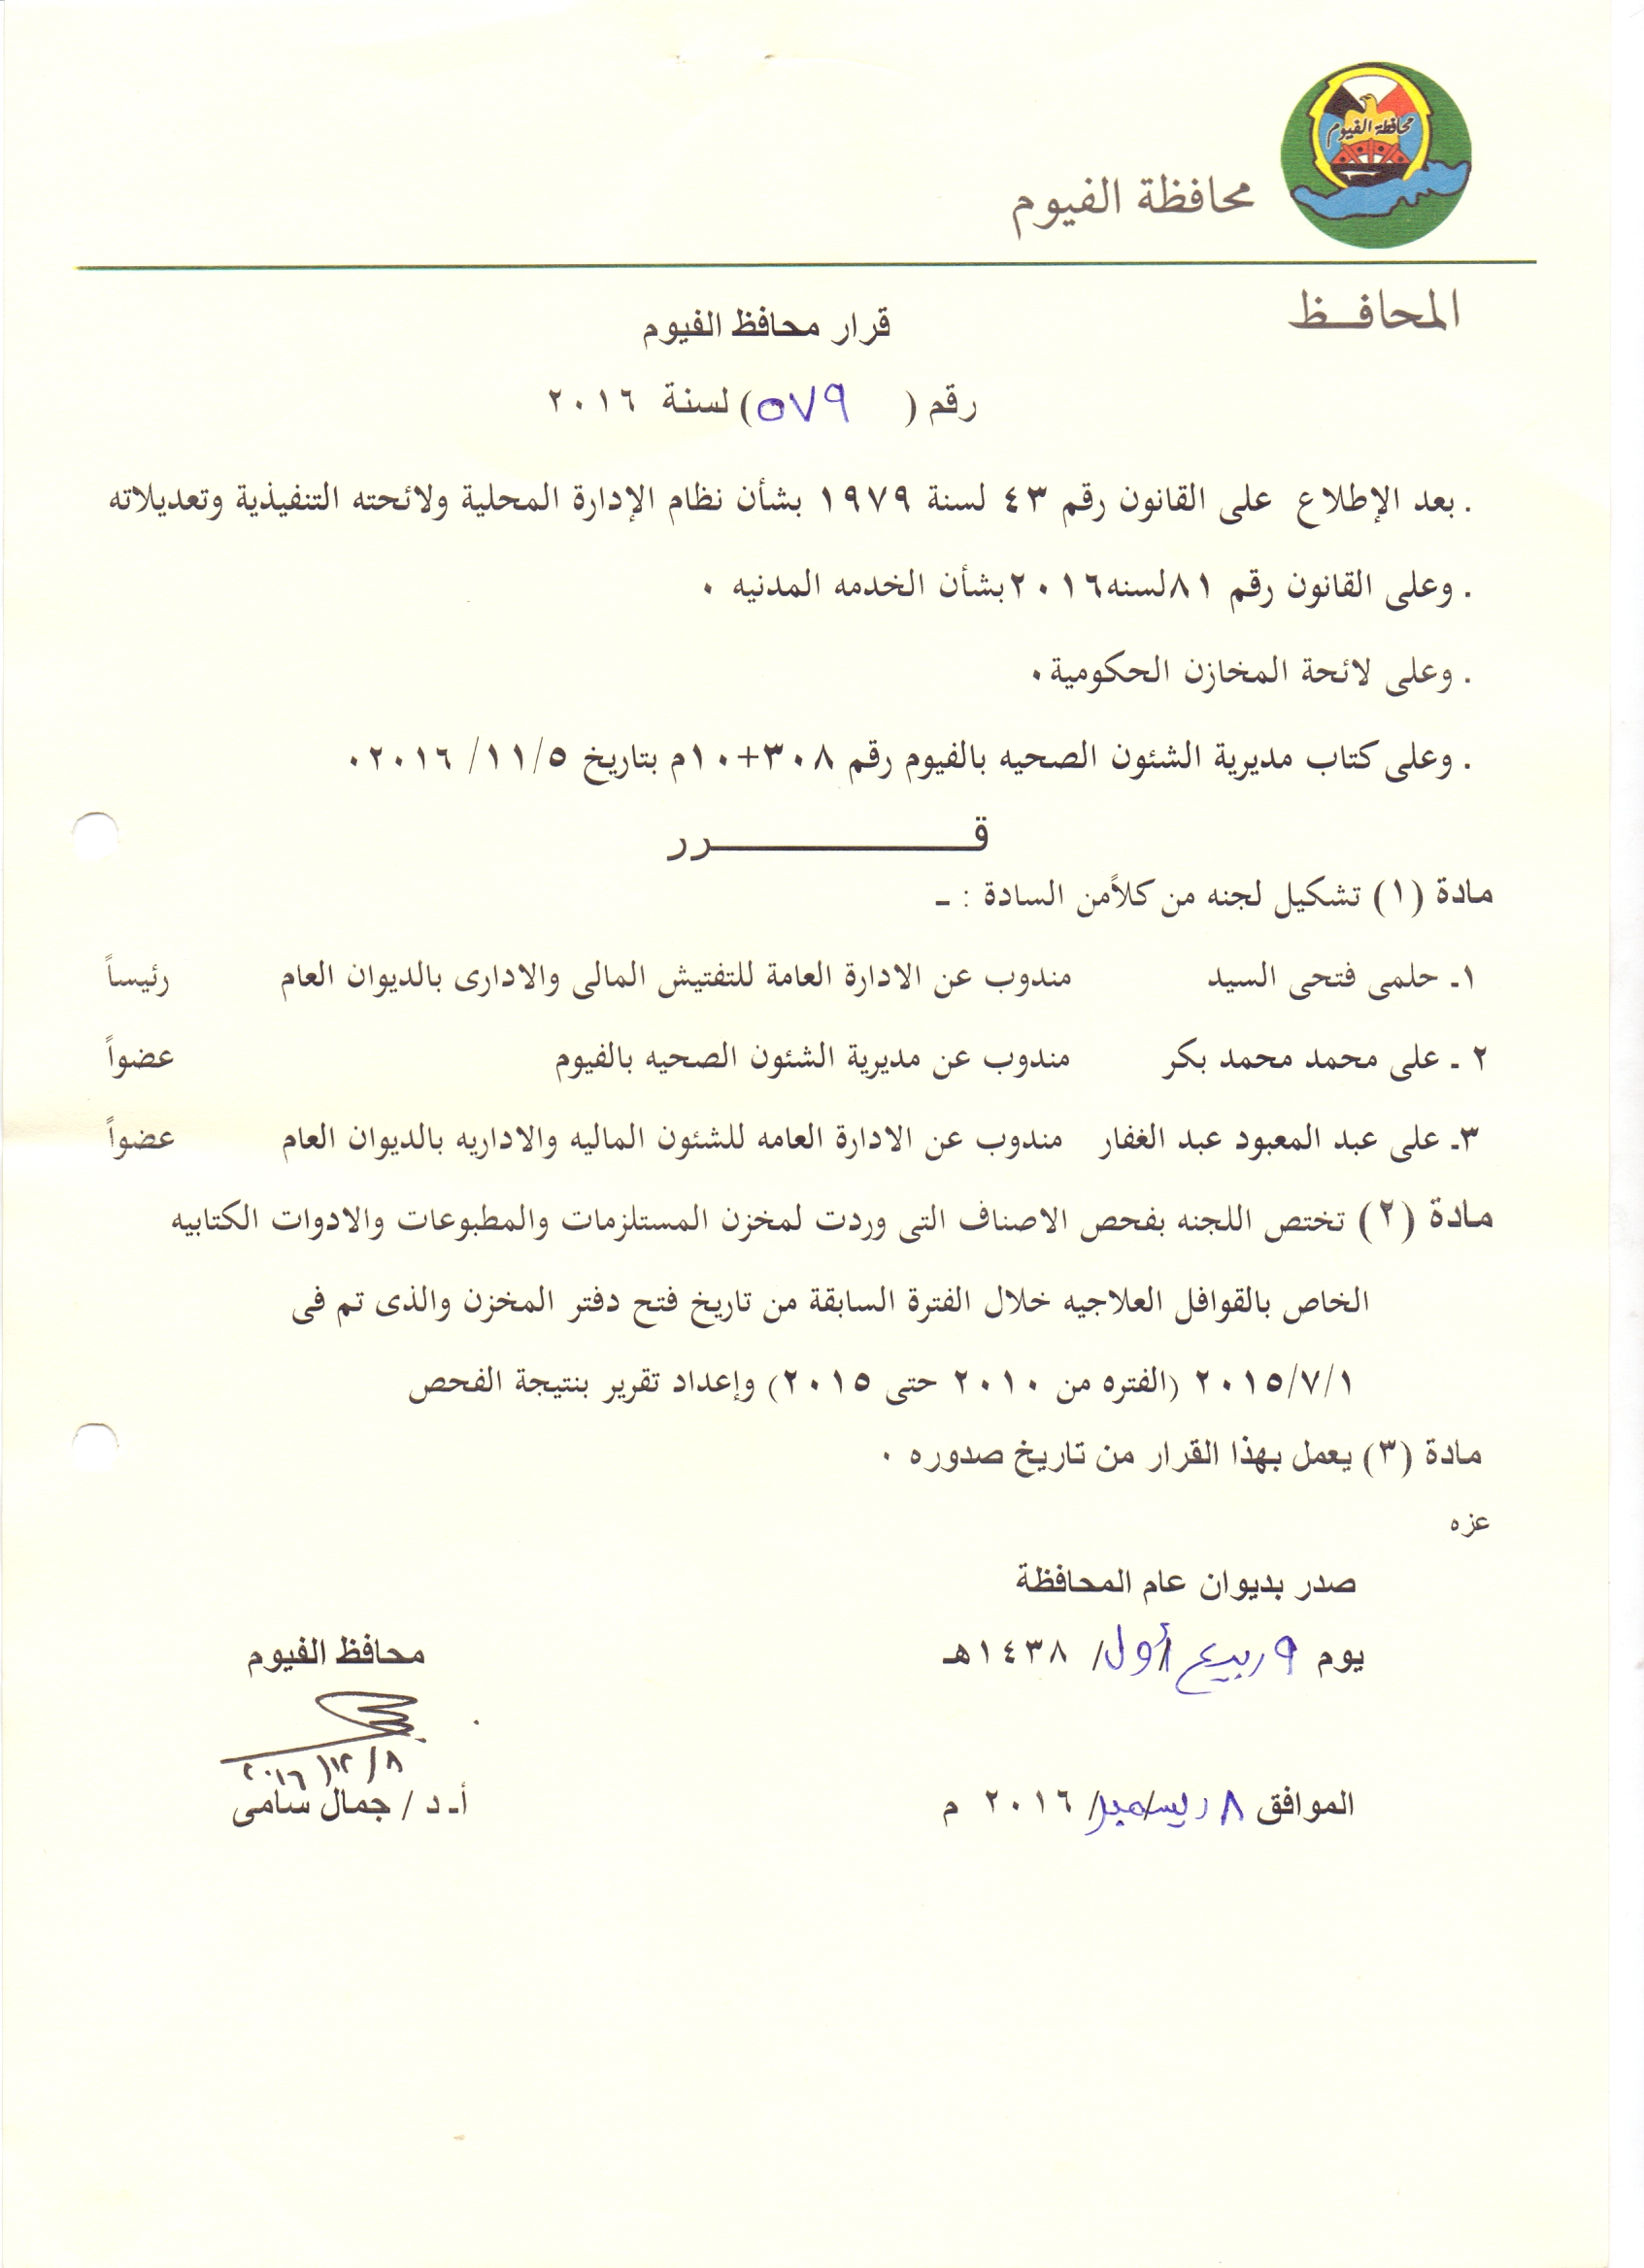 محافظة الفيوم
محافظة الفيوم
المحافــظ
قرار محافظ الفيوم
رقم ( ٥٧٩ ) لسنة ٢٠١٦
. بعد الإطلاع على القانون رقم ٤٣ لسنة ١٩٧٩ بشأن نظام الإدارة المحلية ولائحته التنفيذية وتعديلاته
. وعلى القانون رقم ٨١لسنه٢٠١٦بشأن الخدمه المدنيه ٠
. وعلى لائحة المخازن الحكومية٠
. وعلى كتاب مديرية الشئون الصحيه بالفيوم رقم ٣٠٨+١٠م بتاريخ ١١/٥/ ٢٠١٦٠
قــــــــــــــرر
مادة (١) تشكيل لجنه من كلاًمن السادة : ـ
١ـ حلمى فتحى السيد مندوب عن الادارة العامة للتفتيش المالى والادارى بالديوان العام رئيساً
٢ ـ على محمد محمد بكر مندوب عن مديرية الشئون الصحيه بالفيوم عضواً
٣ـ على عبد المعبود عبد الغفار مندوب عن الادارة العامه للشئون الماليه والاداريه بالديوان العام عضواً
مادة (٢) تختص اللجنه بفحص الاصناف التى وردت لمخزن المستلزمات والمطبوعات والادوات الكتابيه
الخاص بالقوافل العلاجيه خلال الفترة السابقة من تاريخ فتح دفتر المخزن والذى تم فى
٢٠١٥/٧/١ (الفتره من ٢٠١٠ حتى ٢٠١٥) وإعداد تقرير بنتيجة الفحص
مادة (٣) يعمل بهذا القرار من تاريخ صدوره ٠
عزه
صدر بديوان عام المحافظة
يوم ٩ ربيع أول/ ١٤٣٨هـ
محافظ الفيوم
٢٠١٦/١٢/٨
الموافق ٨ ديسمبر/ ٢٠١٦ م
أـ د / جمال سامى